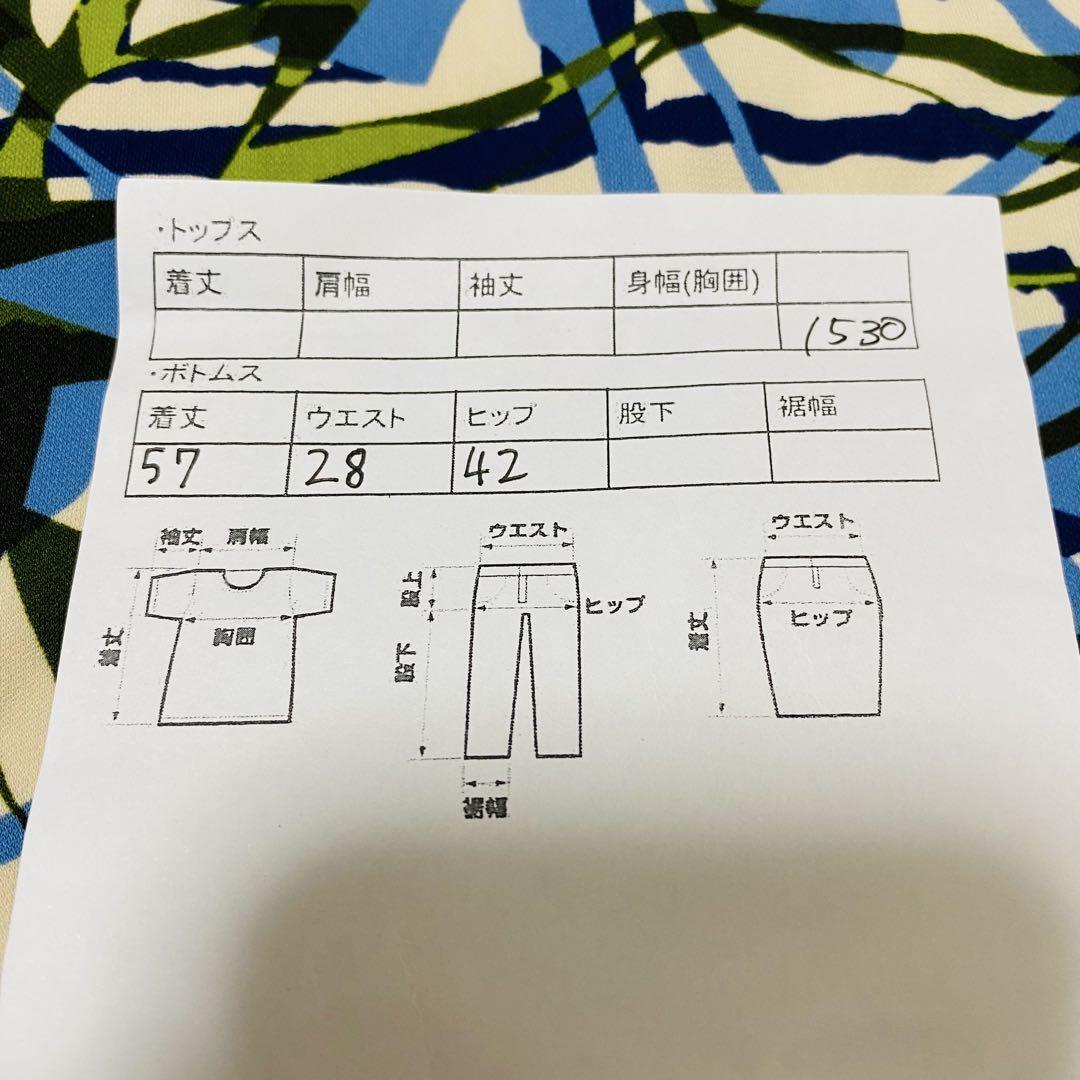 ・トップス
着丈 肩幅 袖丈 身幅(胸囲)
1530
・ボトムス
着丈 ウエスト ヒップ 股下 裾幅
57 28 42
袖丈 肩幅
着丈
胸囲
ウエスト
股上
ヒップ
股下
裾幅
ウエスト
着丈
ヒップ